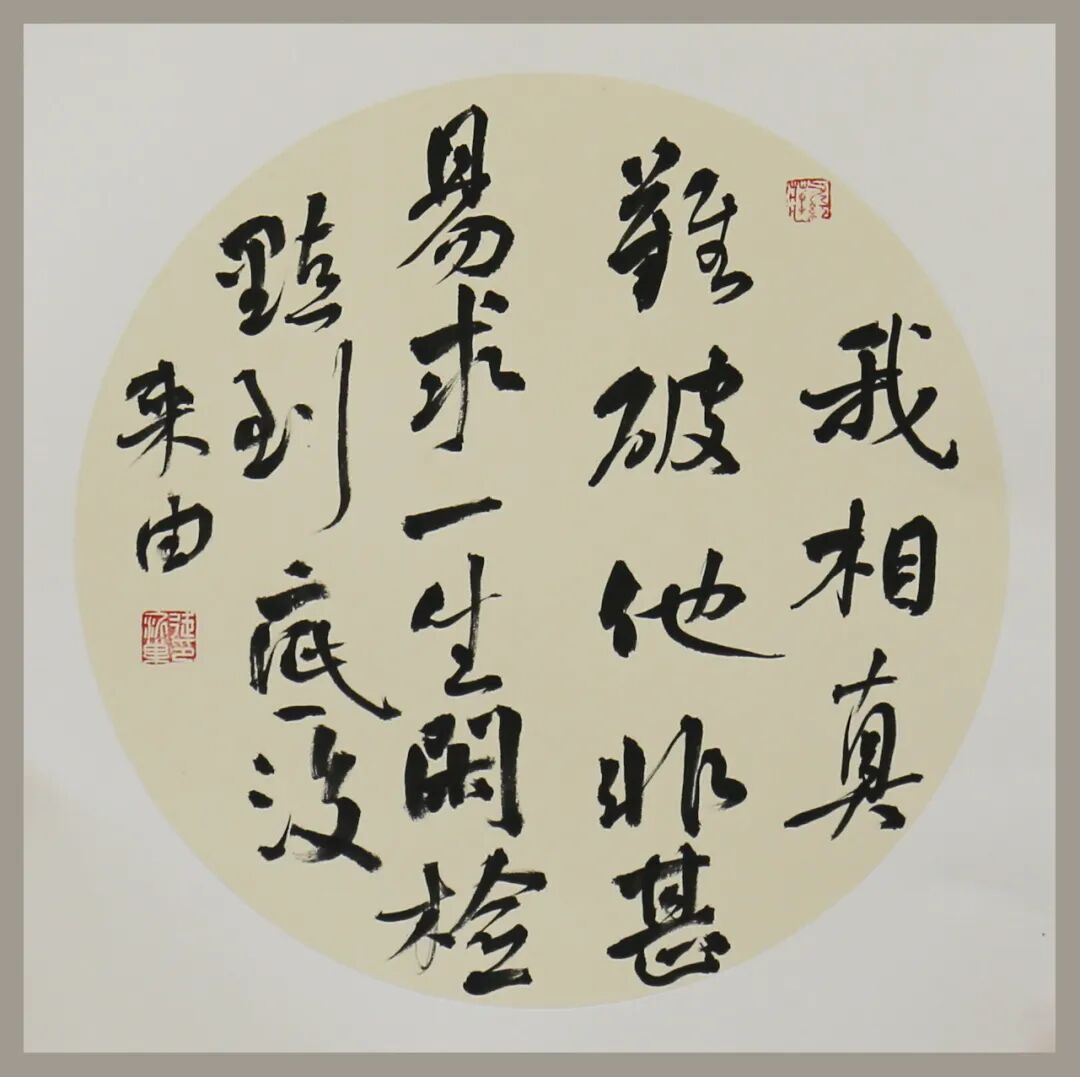 我相真
難破他非甚
易求一生閑檢
點到底没
来由